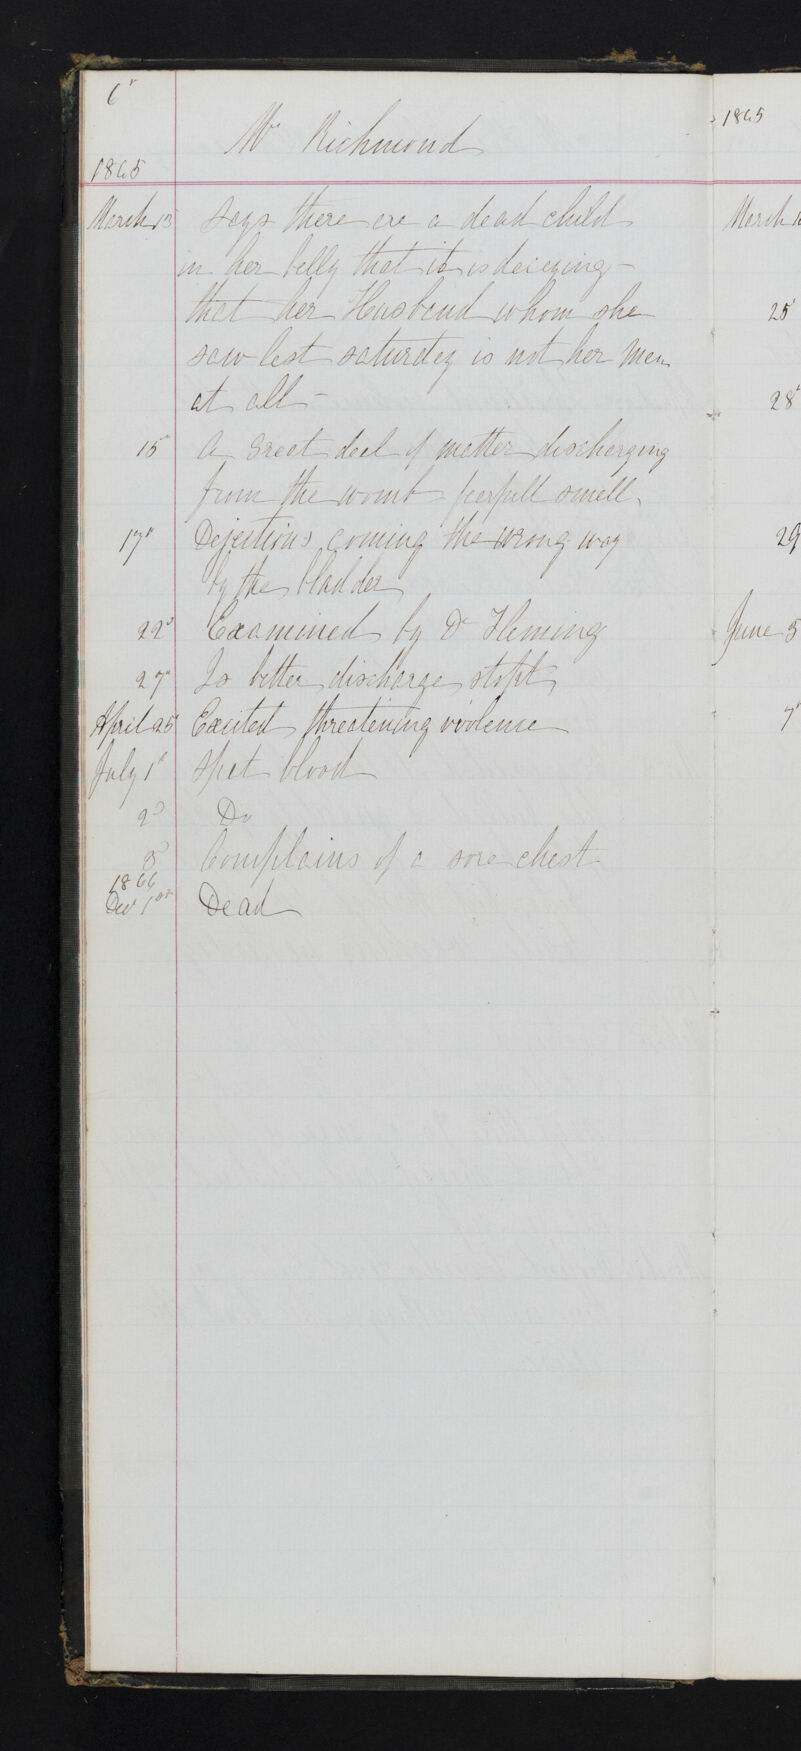 6
Mrs Richmond
1865
March 13 Says there are a dead child
in her belly that it is decaying -
that her Husband whom she
saw last saturday is not her man
at all -
15 A Great deal of matter discharging
from the womb - smell
17 Dejections coming the wrong way
by the bladder
22 Examined by Dr Fleming
27 Is better discharge stopt
April 25 Excited threatening violence
July 1st Spit blood
2d Do
5 Complains of a sore chest
1866
Decr 1st Dead
1865
March
25
28
29
June 5
7